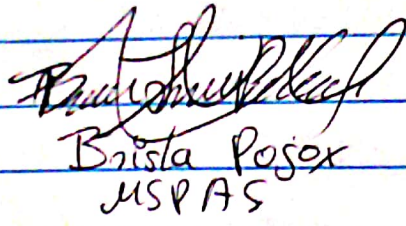 Brista Pojox
MSPAS